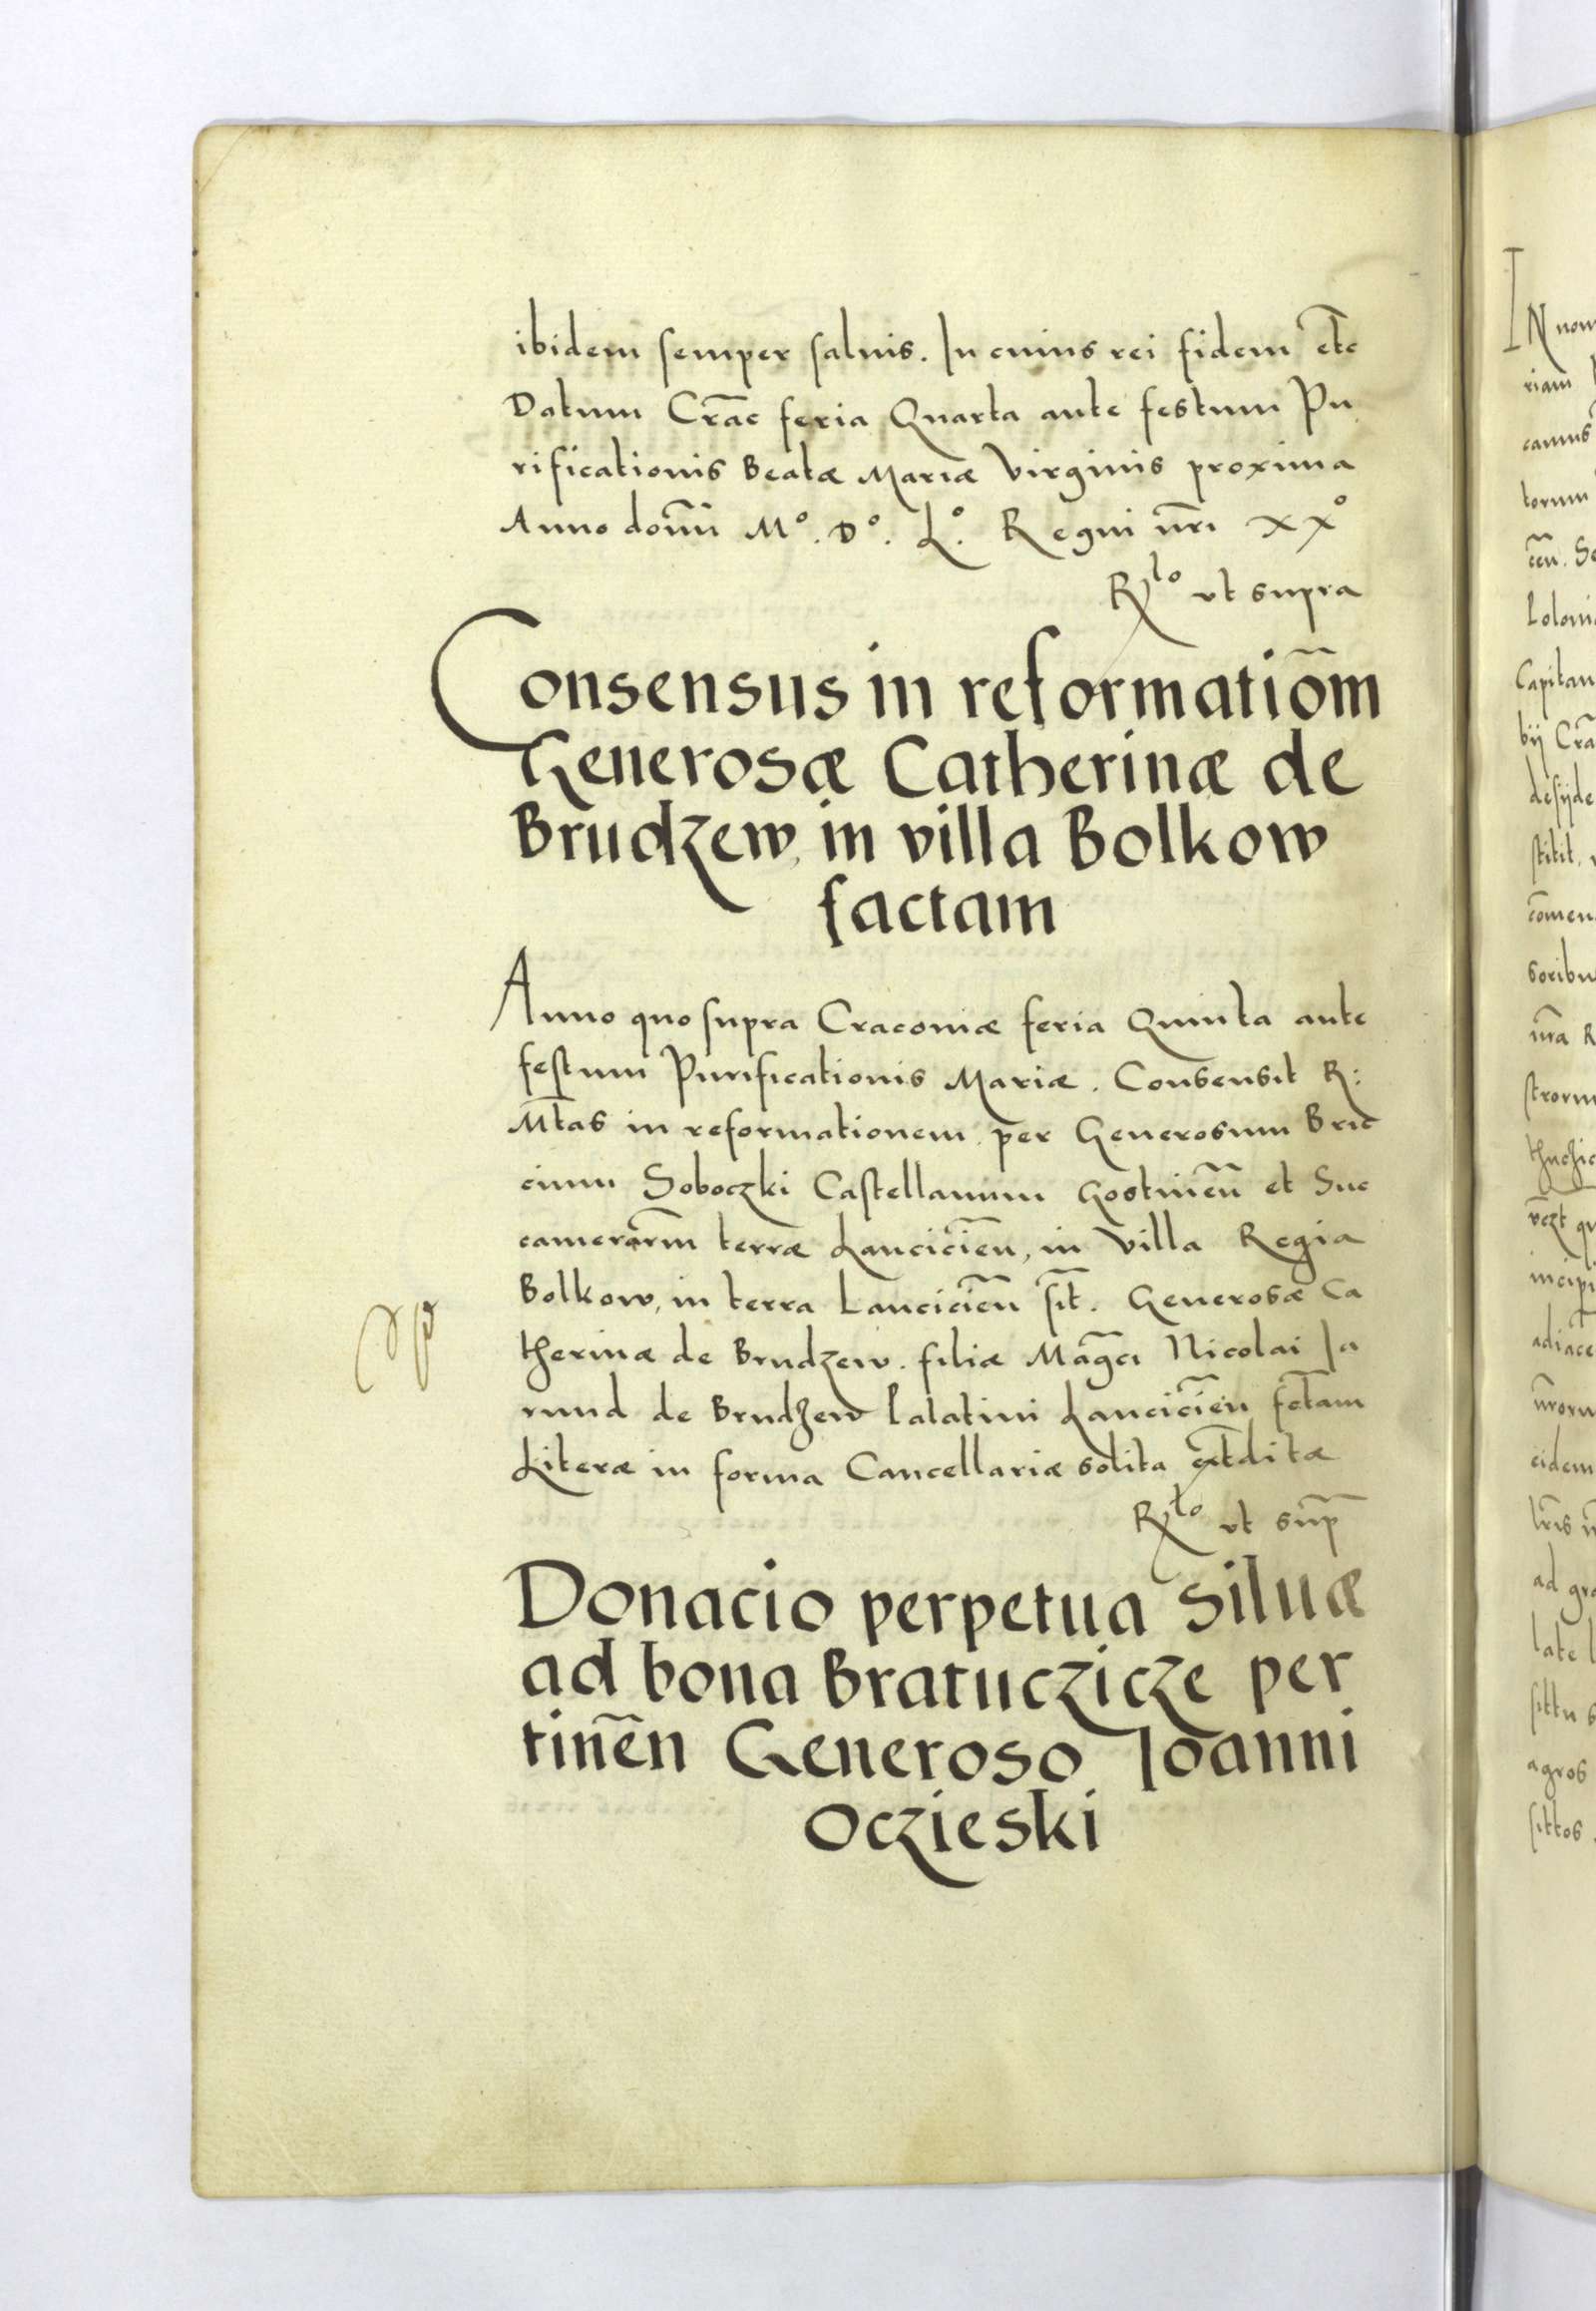 ibidem semper saluis. In cuius rei fidem etc̃
Datum Crac̃ feria Quarta ante festum Pu
rificationis Beatæ Mariæ Virginis proxima
Anno domĩ Mº. Dº. Lº. Regni nr̃i XXº
Rᵗᵒ vt supra
Consensus in reformatiõm
Generosæ Catherinæ de
Brudzew, in villa Bolkow
factam
Anno quo supra Cracoviæ feria Quinta ante
festum Purificationis Mariæ. Consensit R:
Mt̃as in reformationem per Generosum Bric
cium Soboczki Castellanum Gostineñ et Suc
camerariũm terræ Lancicieñ, in Villa Regia
Bolkow, in terra Lancicieñ sit̃. Generosæ Ca
therinæ de Brudzew. filiæ Mag̃ci Nicolai Ja
rund de Brudzew Palatini Lancicieñ fct̃am
Literæ in forma Cancellariæ solita ext̃ditæ
Rᵗᵒ vt sup̃
Donacio perpetua Siluæ
ad bona Bratuczicze per
tineñ Generoso Joanni
Oczieski
IN nom
riam
camus
torum
ceñ. Se
Poloni
Capitan
bij Crã
desyde
stitit,
com̃en
soribu
nr̃a R
strorum
incipi
adiace
nr̃oru
eidem
lr̃is
ad gra
late l
sittu s
agros
sittos